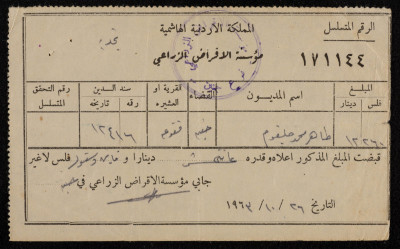 الرقم المتسلسل
المملكة الأردنية الهاشمية
١٧١١٤٤
مؤسسة الاقراض الزراعي
المبلغ
فلس دينار
اسم المديون
القضاء
القرية او العشيره
سند الدين
رقه تاريخه
رقم التحقق المتسلسل
١٢٢٦٠
طاهر محمد
جنين
١٢٤١٦
قبضت المبلغ المذكور اعلاه وقدره دينارا و فلس لاغير
جابي مؤسسة الاقراض الزراعي في جنين
التاريخ ٢٦ / ١٠ / ١٩٦٣